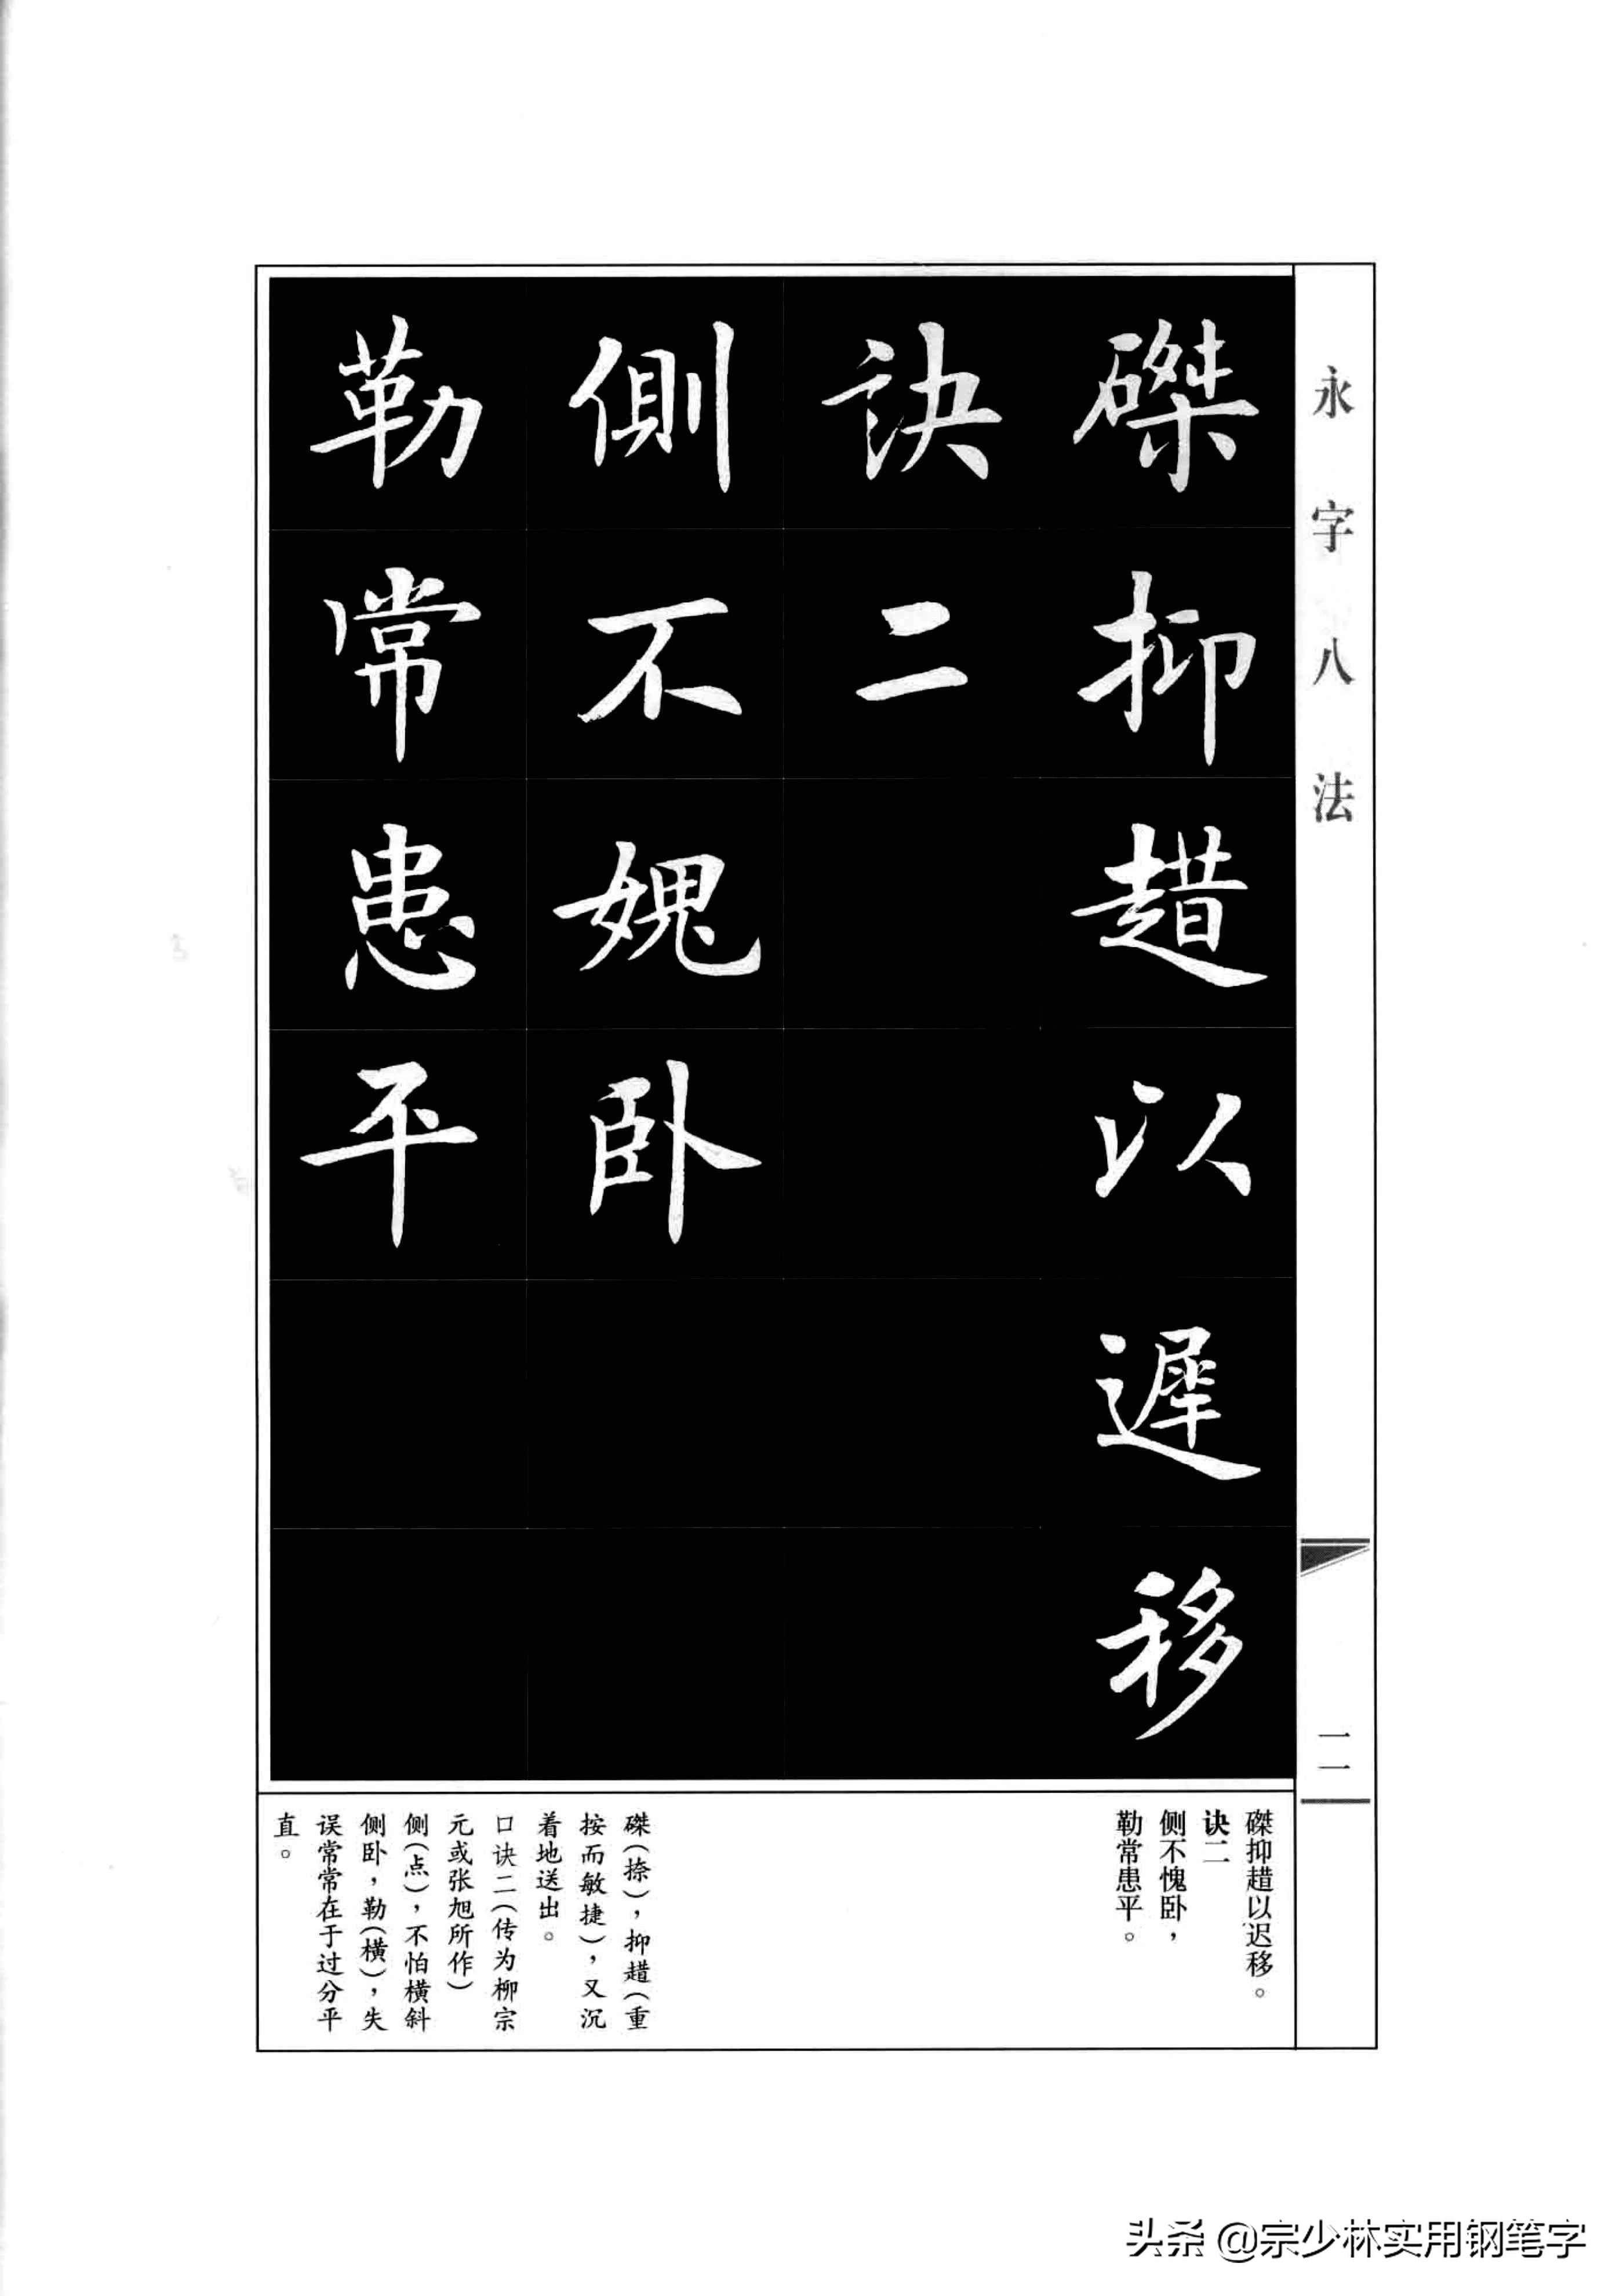 永字八法
二一
磔抑趞以遲移
訣二
側不媿卧
勒常患平
磔抑趞以迟移。
诀二
侧不愧卧，
勒常患平。
磔（捺），抑趞（重
按而敏捷），又沉
着地送出。
口诀二（传为柳宗
元或张旭所作）
侧（点），不怕横斜
侧卧，勒（横），失
误常常在于过分平
直。
头条 @宗少林实用钢笔字